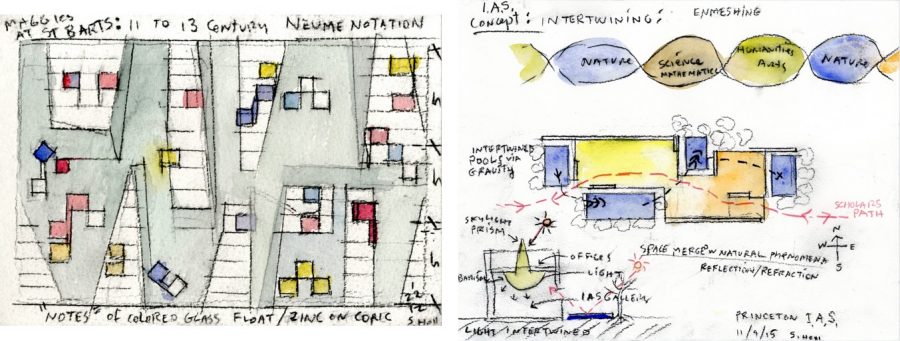 MAGGIES
AT ST BARTS: 11 TO 13 CENTURY NEUME NOTATION
"NOTES" OF COLORED GLASS FLOAT / ZINC ON CONC
S. Holl
I.A.S.
CONCEPT: INTERTWINING: ENMESHING
NATURE
SCIENCE
MATHEMATICS
HUMANITIES
ARTS
NATURE
INTERTWINED
POOLS VIA
GRAVITY
SCHOLARS
PATH
N
W E
S
SKYLIGHT
PRISM
OFFICES
LIGHT
IAS GALLERY
LIGHT INTERTWINED
SPACE MERGE W NATURAL PHENOMENA
REFLECTION/REFRACTION
PRINCETON I.A.S.
11/9/15 S. Holl